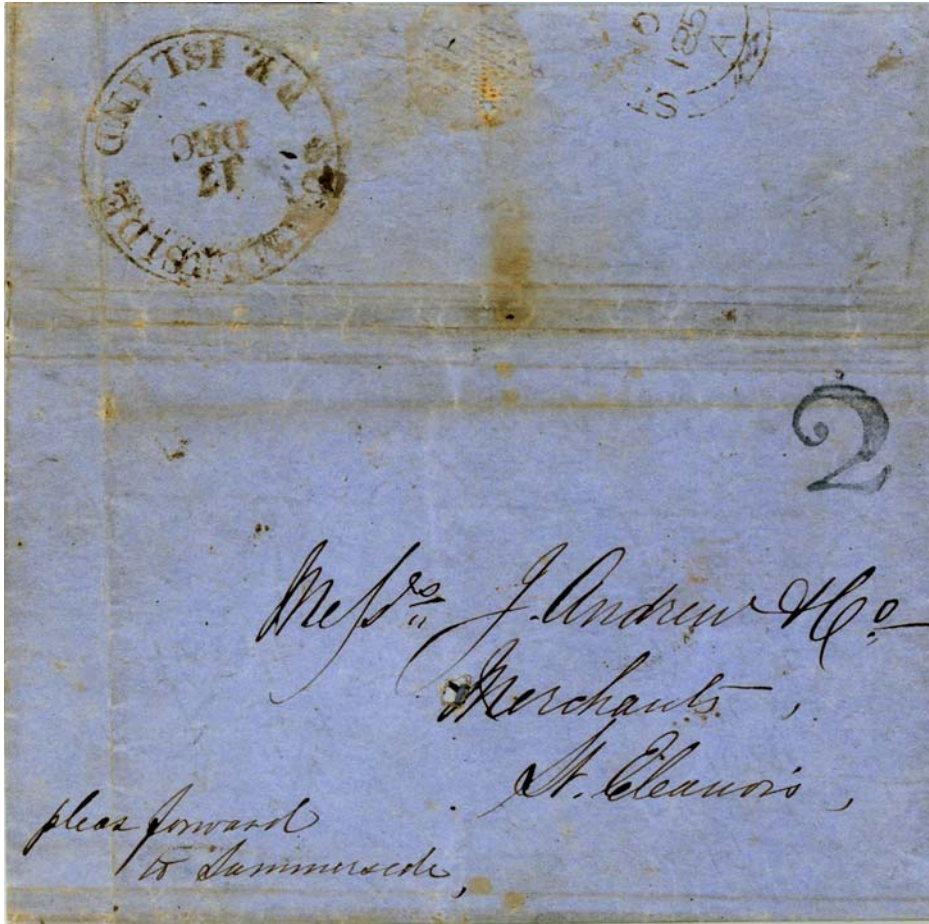 SUMMERSIDE P.E. ISLAND
17
DEC
185
2
Messrs J. Andrew & Co
Merchants,
St. Eleanors,
pleas forward
to Summersede,